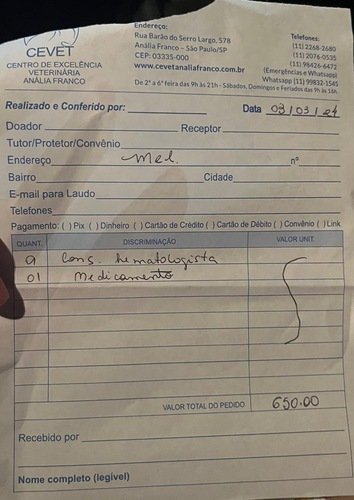 CEVET
CENTRO DE EXCELÊNCIA
VETERINÁRIA
ANÁLIA FRANCO
Endereço:
Rua Barão do Serro Largo, 578
Anália Franco – São Paulo/SP
CEP: 03335-000
www.cevetanaliafranco.com.br
Telefones:
(11) 2268-2680
(11) 2076-0535
(11) 98426-6472
(Emergências e Whatsapp)
Whatsapp (11) 99832-1545
De 2ª a 6ª feira das 9h às 21h - Sábados, Domingos e Feriados das 9h às 16h.
Realizado e Conferido por: Data 03/03/24
Doador Receptor
Tutor/Protetor/Convênio
Endereço Mel. nº
Bairro Cidade
E-mail para Laudo
Telefones
Pagamento: ( ) Pix ( ) Dinheiro ( ) Cartão de Crédito ( ) Cartão de Débito ( ) Convênio ( ) Link
QUANT. DISCRIMINAÇÃO VALOR UNIT.
Cons. hematologista
01 Medicamento
VALOR TOTAL DO PEDIDO 650.00
Recebido por
Nome completo (legível)